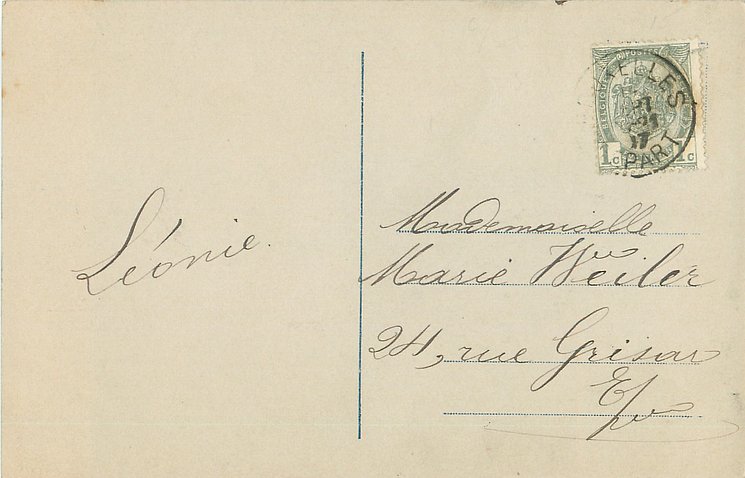 Léonie.
Mademoiselle
Marie Weiler
24, rue Grisar
E/v
POSTES
1c 1c
ELLES
PART